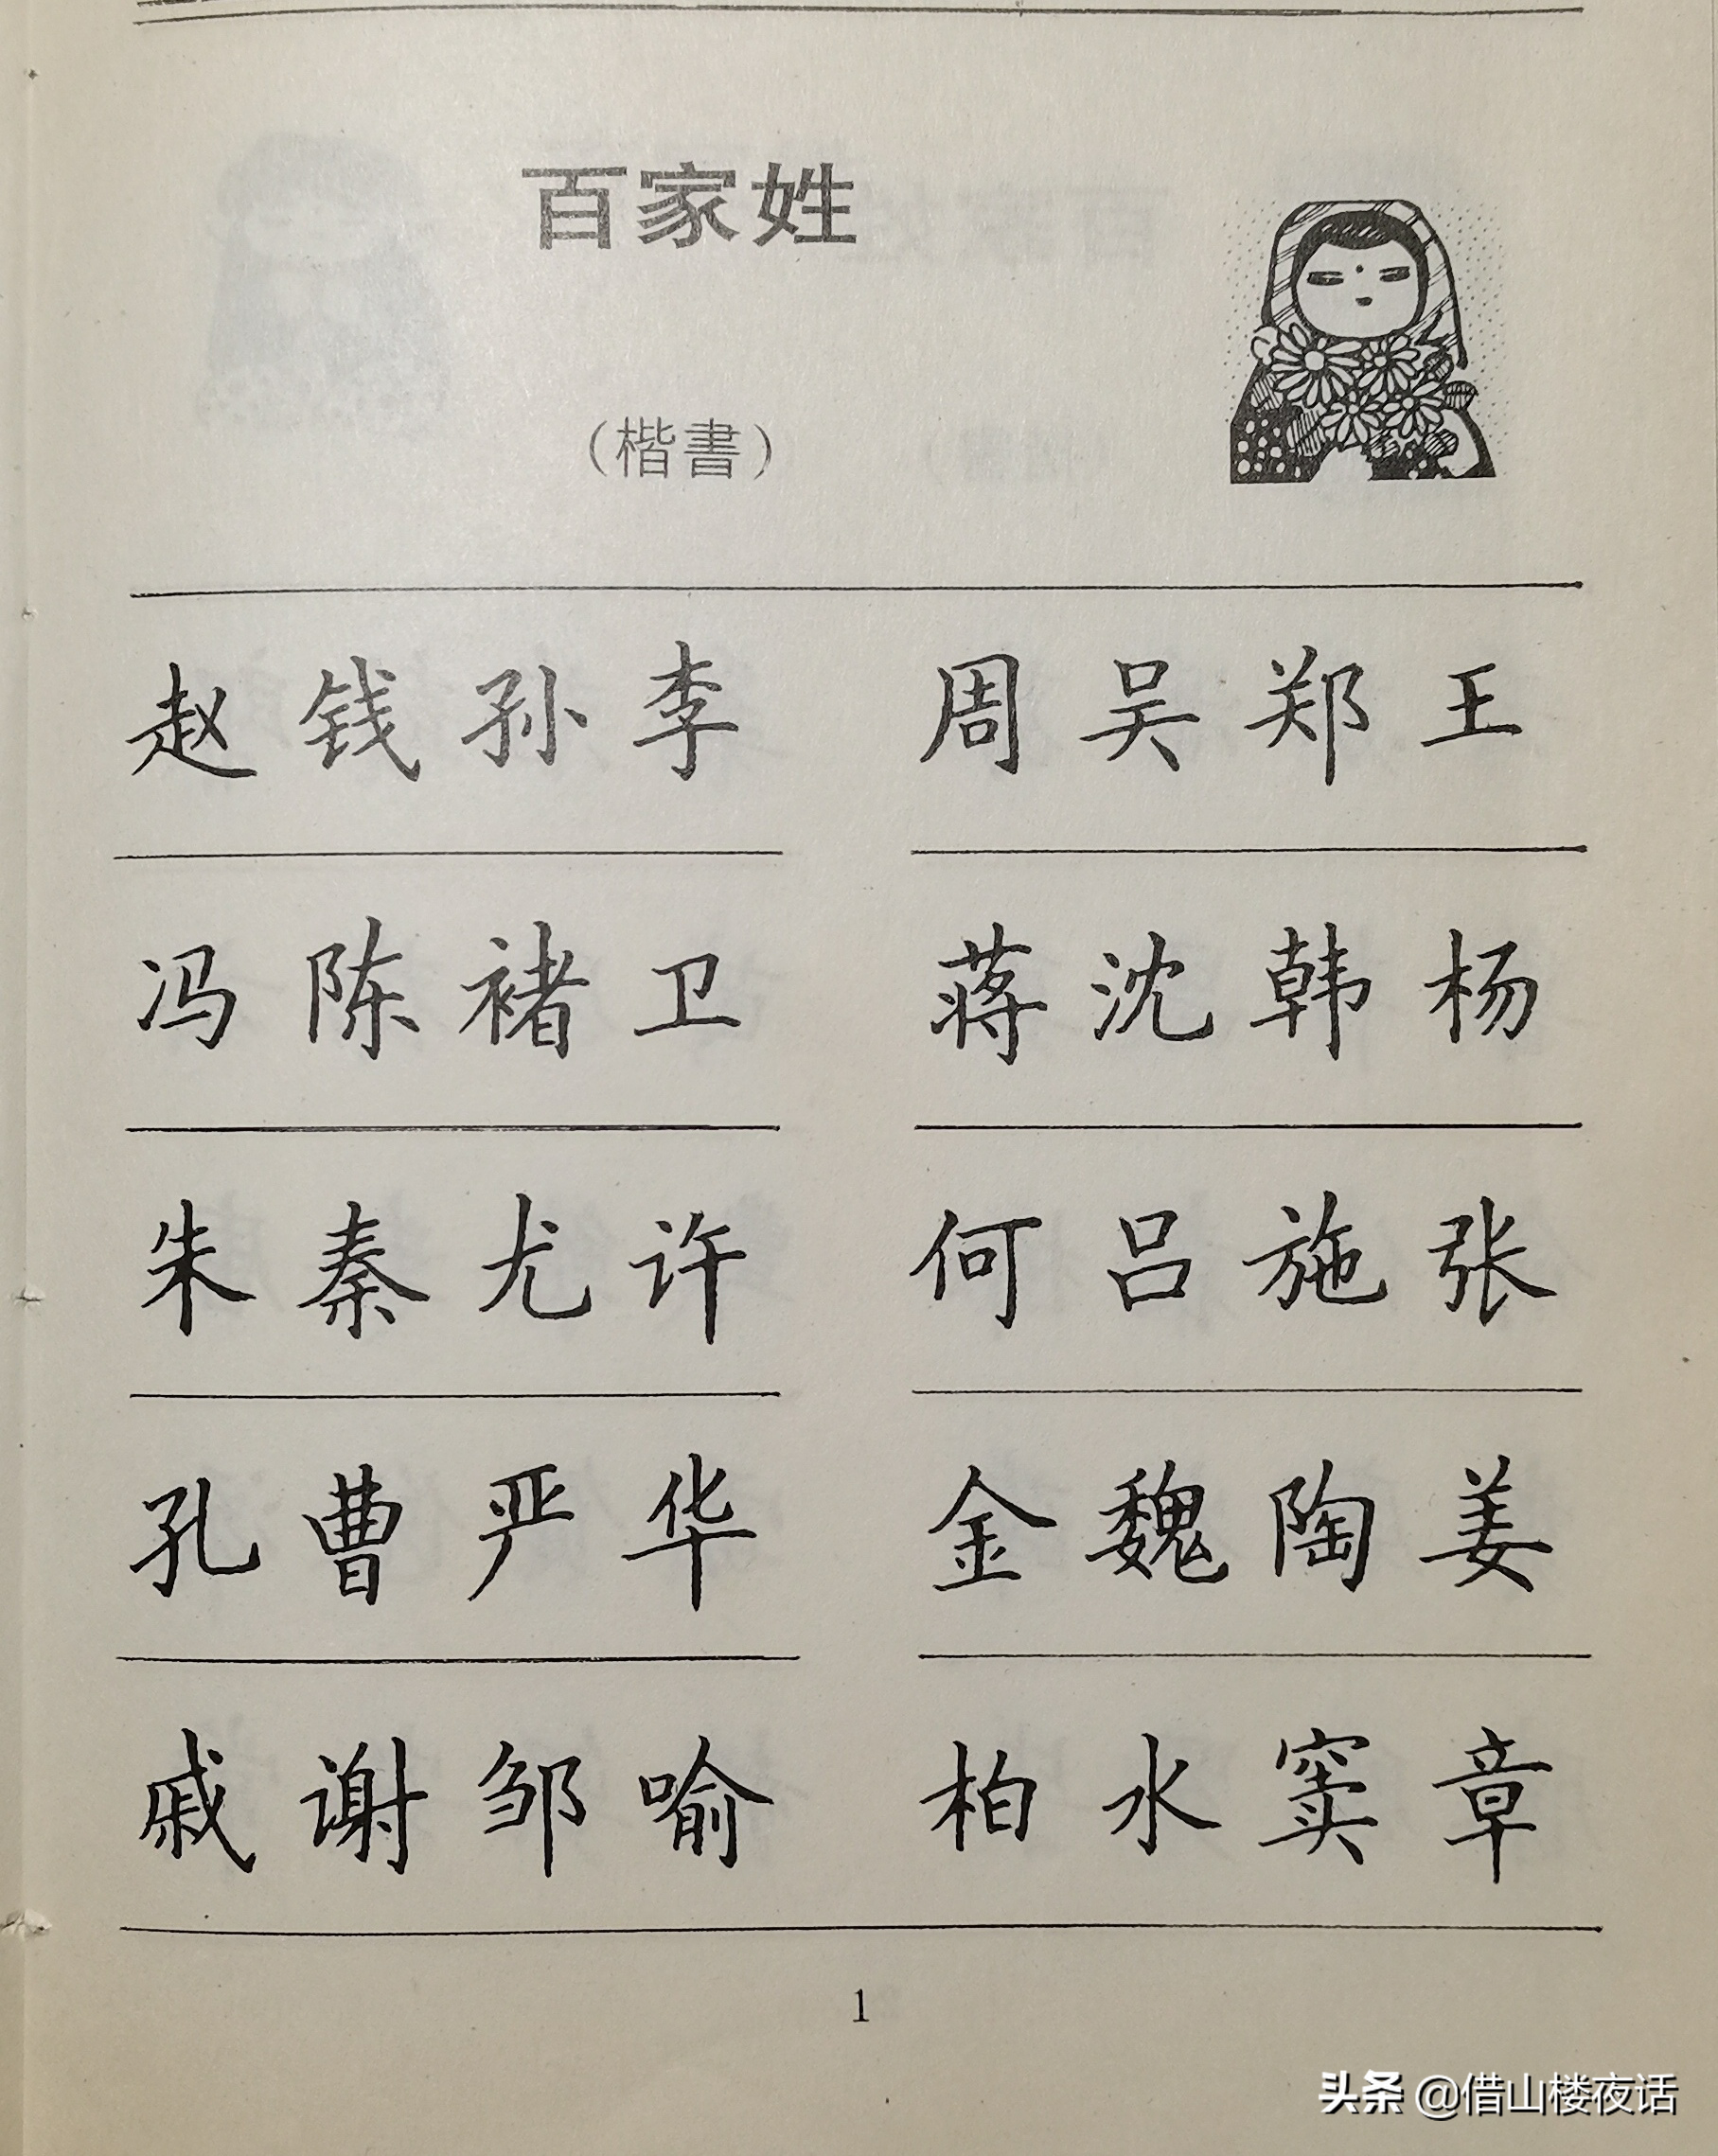 百家姓
（楷書）
赵钱孙李 周吴郑王
冯陈褚卫 蒋沈韩杨
朱秦尤许 何吕施张
孔曹严华 金魏陶姜
戚谢邹喻 柏水窦章
1
头条 @借山楼夜话